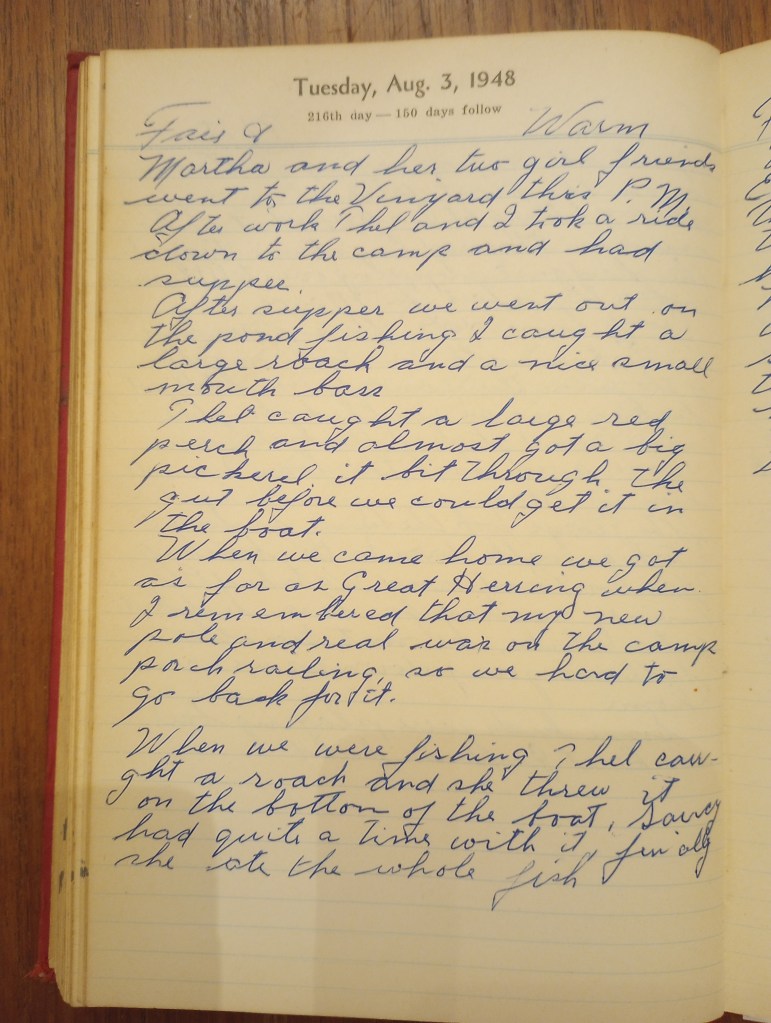 Tuesday, Aug. 3, 1948
216th day — 150 days follow
Fair & Warm
Martha and her two girl friends
went to the Vinyard this P.M.
After work Thel and I took a ride
down to the camp and had
supper.
After supper we went out on
the pond fishing I caught a
large roach and a nice small
mouth bass
Thel caught a large red
perch and almost got a big
pickerel, it bit through the
gut before we could get it in
the boat.
When we came home we got
as far as Great Herring when
I remembered that my new
pole and real was on the camp
porch railing, so we had to
go back for it.
When we were fishing Thel cau-
ght a roach and she threw it
on the bottom of the boat, Saucy
had quite a time with it, finially
she ate the whole fish